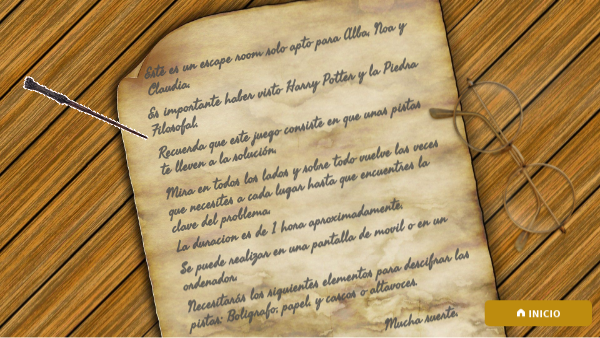 Este es un escape room solo apto para Alba, Noa y
Claudia.
Es importante haber visto Harry Potter y la Piedra
Filosofal.
Recuerda que este juego consiste en que unas pistas
te lleven a la solución.
Mira en todos los lados y sobre todo vuelve las veces
que necesites a cada lugar hasta que encuentres la
clave del problema.
La duracion es de 1 hora aproximadamente.
Se puede realizar en una pantalla de movil o en un
ordenador.
Necesitarás los siguientes elementos para descifrar las
pistas: Boligrafo, papel, y cascos o altavoces.
Mucha suerte.
INICIO